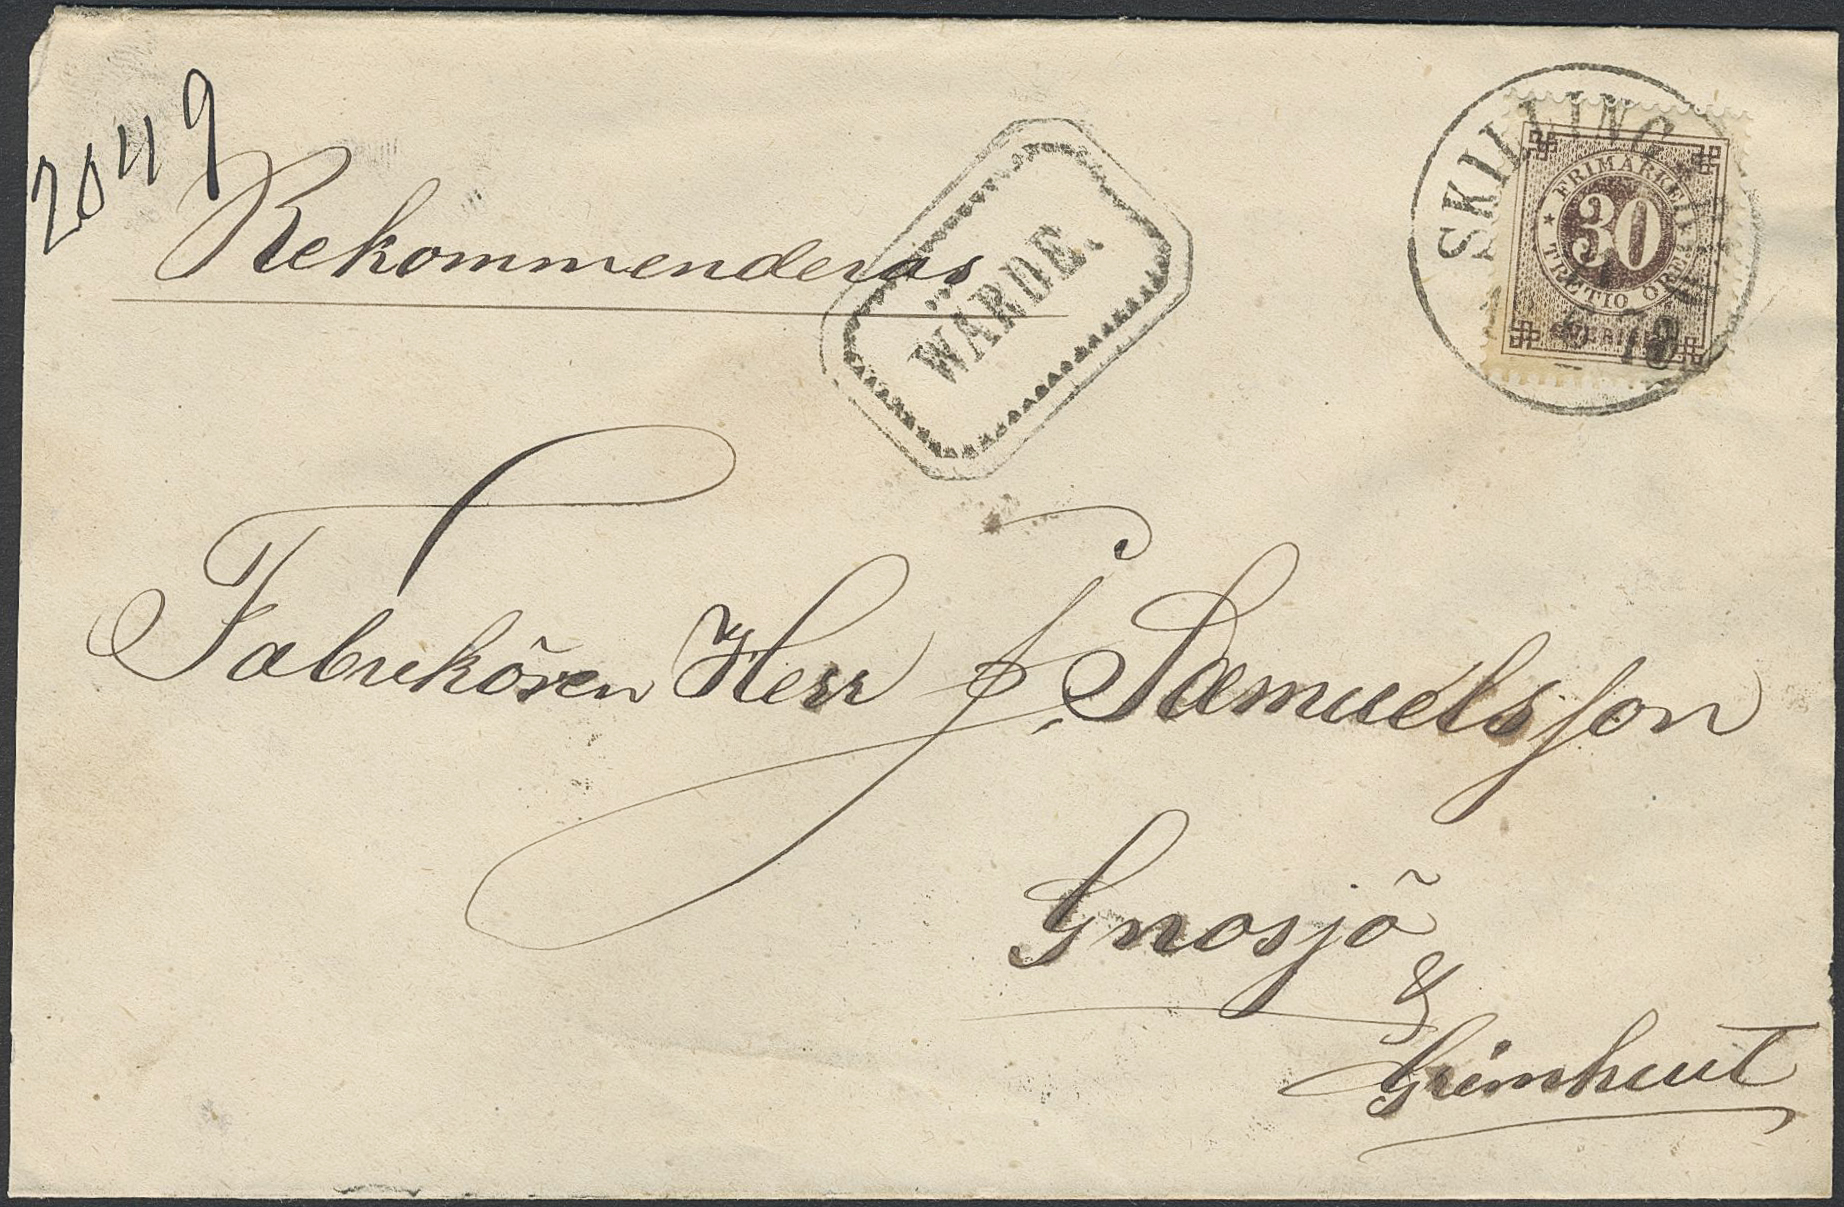 2049
Rekommenderas
WÄRDE.
SKILLING
FRIMÄRKE
30
TRETIO ÖRE
Fabrikören Herr J. Samuelsson
Gnosjö
&
Grimhult